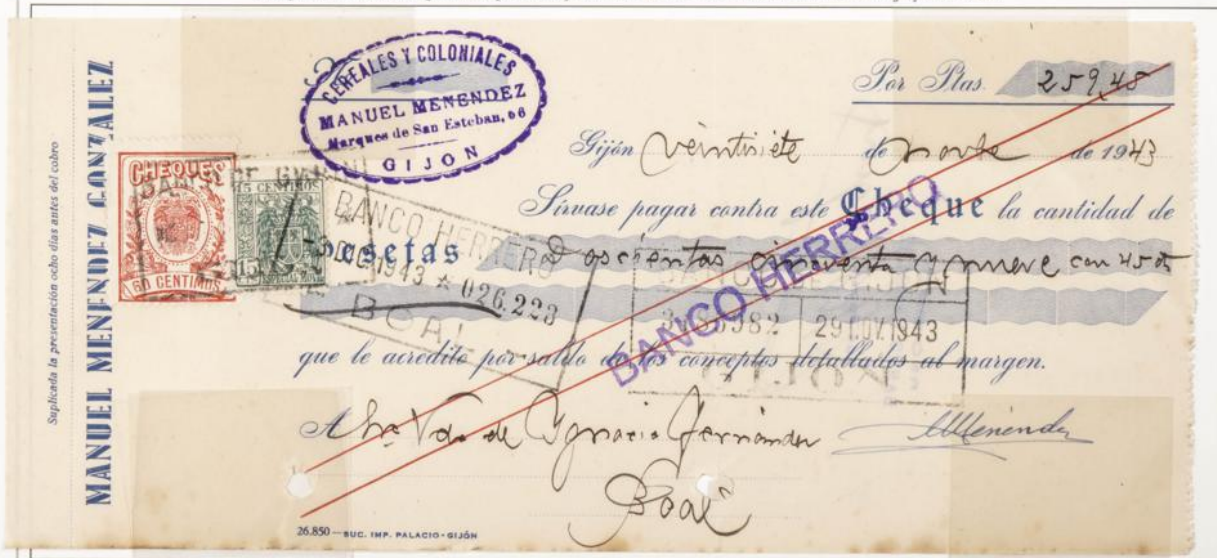 Suplicada la presentación ocho días antes del cobro
MANUEL MENENDEZ GONZALEZ
CEREALES Y COLONIALES
MANUEL MENENDEZ
Marques de San Esteban, 66
GIJON
Por Ptas. 259,45
Gijón veintisiete de novbe de 1943
Sírvase pagar contra este Cheque la cantidad de
Pesetas Doscientas cincuenta y nueve con 45 cts
que le acredito por saldo de los conceptos detallados al margen.
A Sra Vda de Ygnacio Fernández
MMenéndez
Boal
CHEQUES
60 CENTIMOS
15 CENTIMOS
15
BANCO HERRERO
3 DIC 1943 * 026.223
BOAL
BANCO HERRERO
BANCO DE GIJON
982 29 NOV. 1943
GIJON
26.850 — SUC. IMP. PALACIO - GIJÓN